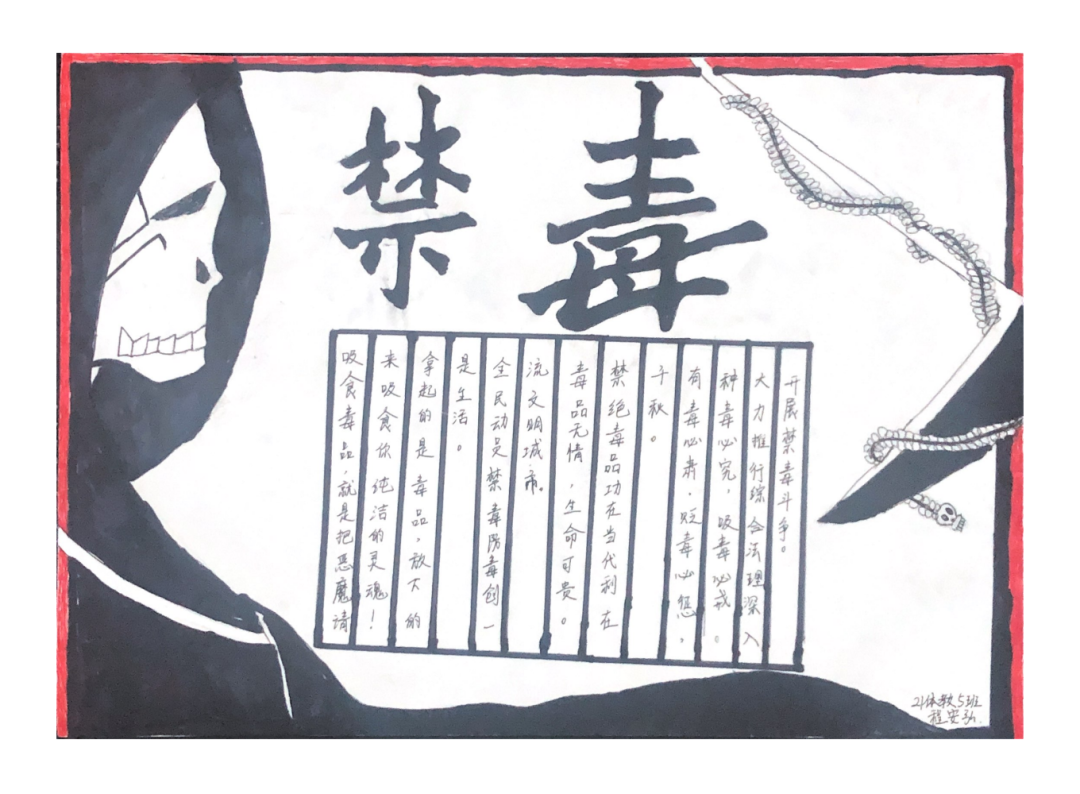 禁毒
吸食毒品，就是把恶魔请
来吸食你纯洁的灵魂！
拿起的是毒品，放下的
是生活。
全民动员禁毒防毒创一
流文明城市。
毒品无情，生命可贵。
禁绝毒品功在当代利在
千秋。
有毒必肃，贬毒必惩，
种毒必究，吸毒必戒。
大力推行综合法理深入
开展禁毒斗争。
21体教5班
程安弘